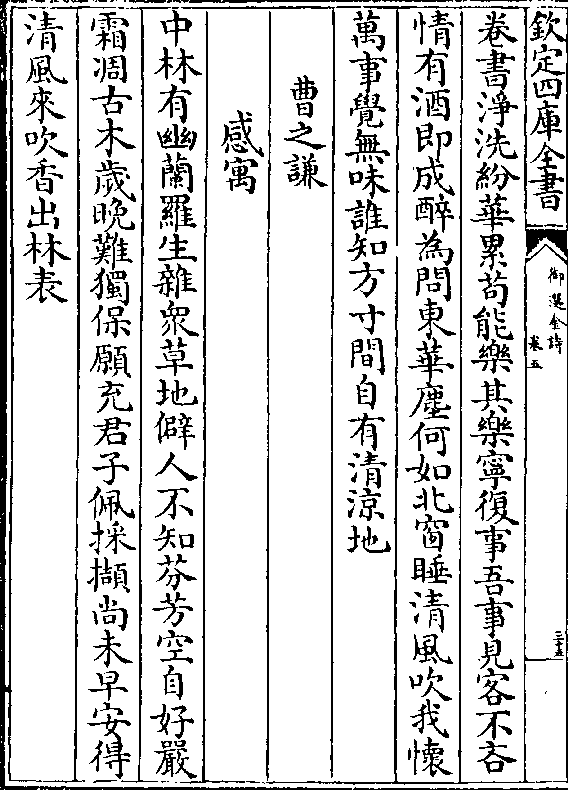 欽定四庫全書
御選金詩
卷五
三十五
卷書淨洗紛華累苟能樂其樂寧復事吾事見客不吝
情有酒即成醉為問東華塵何如北窗睡清風吹我懷
萬事覺無味誰知方寸間自有清涼地
曹之謙
感寓
中林有幽蘭羅生雜衆草地僻人不知芬芳空自好嚴
霜凋古木歲晚難獨保願充君子佩採擷尚未早安得
清風來吹香出林表